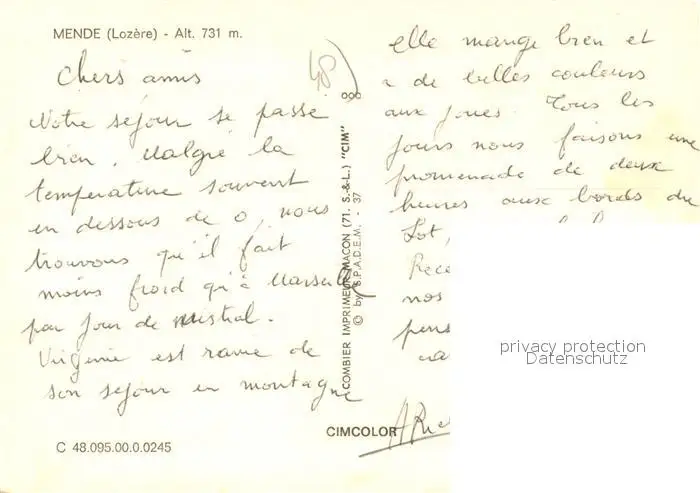 MENDE (Lozère) - Alt. 731 m.
Chers amis
Notre séjour se passe
bien. Malgré la
temperature souvent
en dessous de 0, nous
trouvons qu'il fait
moins froid qu'à Marseille
par jour de mistral.
Virginie est ravie de
son séjour en montagne
C 48.095.00.0.0245
48
COMBIER IMPRIMEUR MACON (71. S.-&-L.) "CIM"
© by S.P.A.D.E.M. - 37
CIMCOLOR
elle mange bien et
a de belles couleurs
aux joues. Tous les
jours nous faisons une
promenade de deux
heures aux bords du
Lot,
Rece
nos
pens
privacy protection
Datenschutz